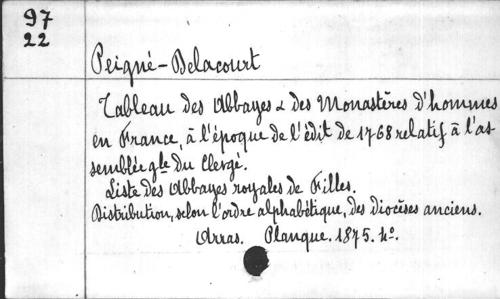 97
22
Peigné-Delacourt
Tableau des Abbayes & des Monastères d'hommes
en France, à l'époque de l'édit de 1768 relatif à l'as
semblée gle du Clergé.
Liste des Abbayes royales de Filles.
Distribution, selon l'ordre alphabétique, des diocèses anciens.
Arras. Planque. 1875. 4o.